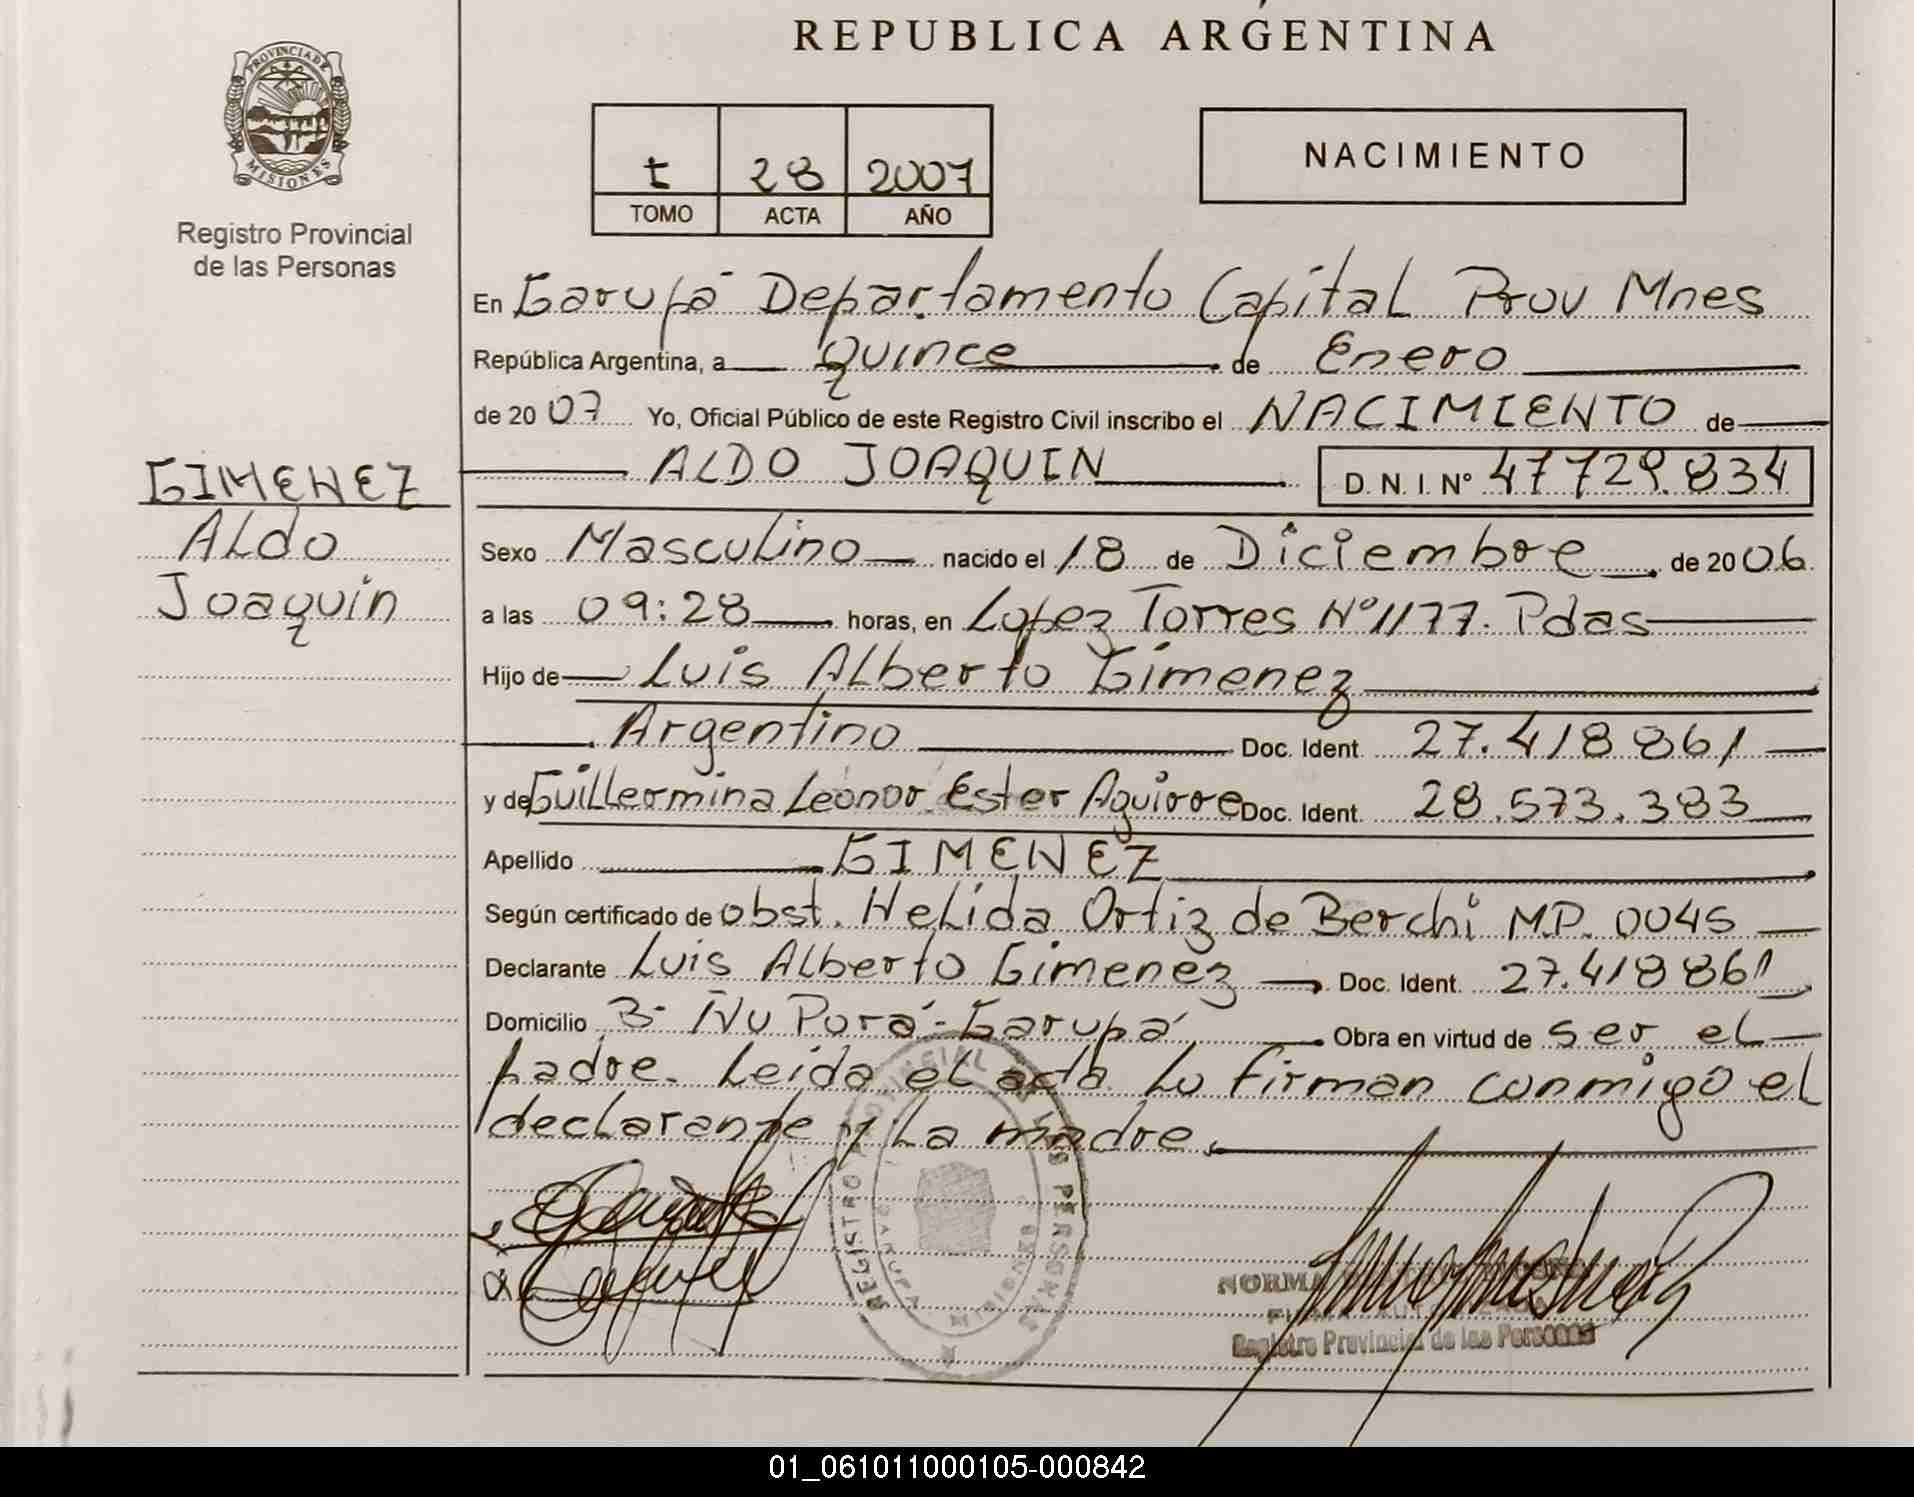 REPUBLICA ARGENTINA
PROVINCIA DE
MISIONES
Registro Provincial
de las Personas
28 2007
TOMO ACTA AÑO
NACIMIENTO
En Garupá Departamento Capital Prov Mnes
República Argentina, a Quince de Enero
de 2007 Yo, Oficial Público de este Registro Civil inscribo el NACIMIENTO de
ALDO JOAQUIN D. N. I. Nº 47729.834
GIMENEZ
Aldo
Joaquin
Sexo Masculino nacido el 18 de Diciembre de 2006
a las 09:28 horas, en Lopez Torres Nº 1177. Pdas
Hijo de Luis Alberto Gimenez
Argentino Doc. Ident. 27.418861
y de Guillermina Leonor Ester Aguirre Doc. Ident. 28.573.383
Apellido GIMENEZ
Según certificado de obst. Helida Ortiz de Berchi M.P. 0045
Declarante Luis Alberto Gimenez Doc. Ident. 27.418861
Domicilio B- Ñu Porá - Garupá Obra en virtud de ser el
padre. Leida el acta lo firman conmigo el
declarante y la madre.
REGISTRO PROVINCIAL DE LAS PERSONAS
GARUPA
MISIONES
NORMA
Registro Provincial de las Personas
01_061011000105-000842